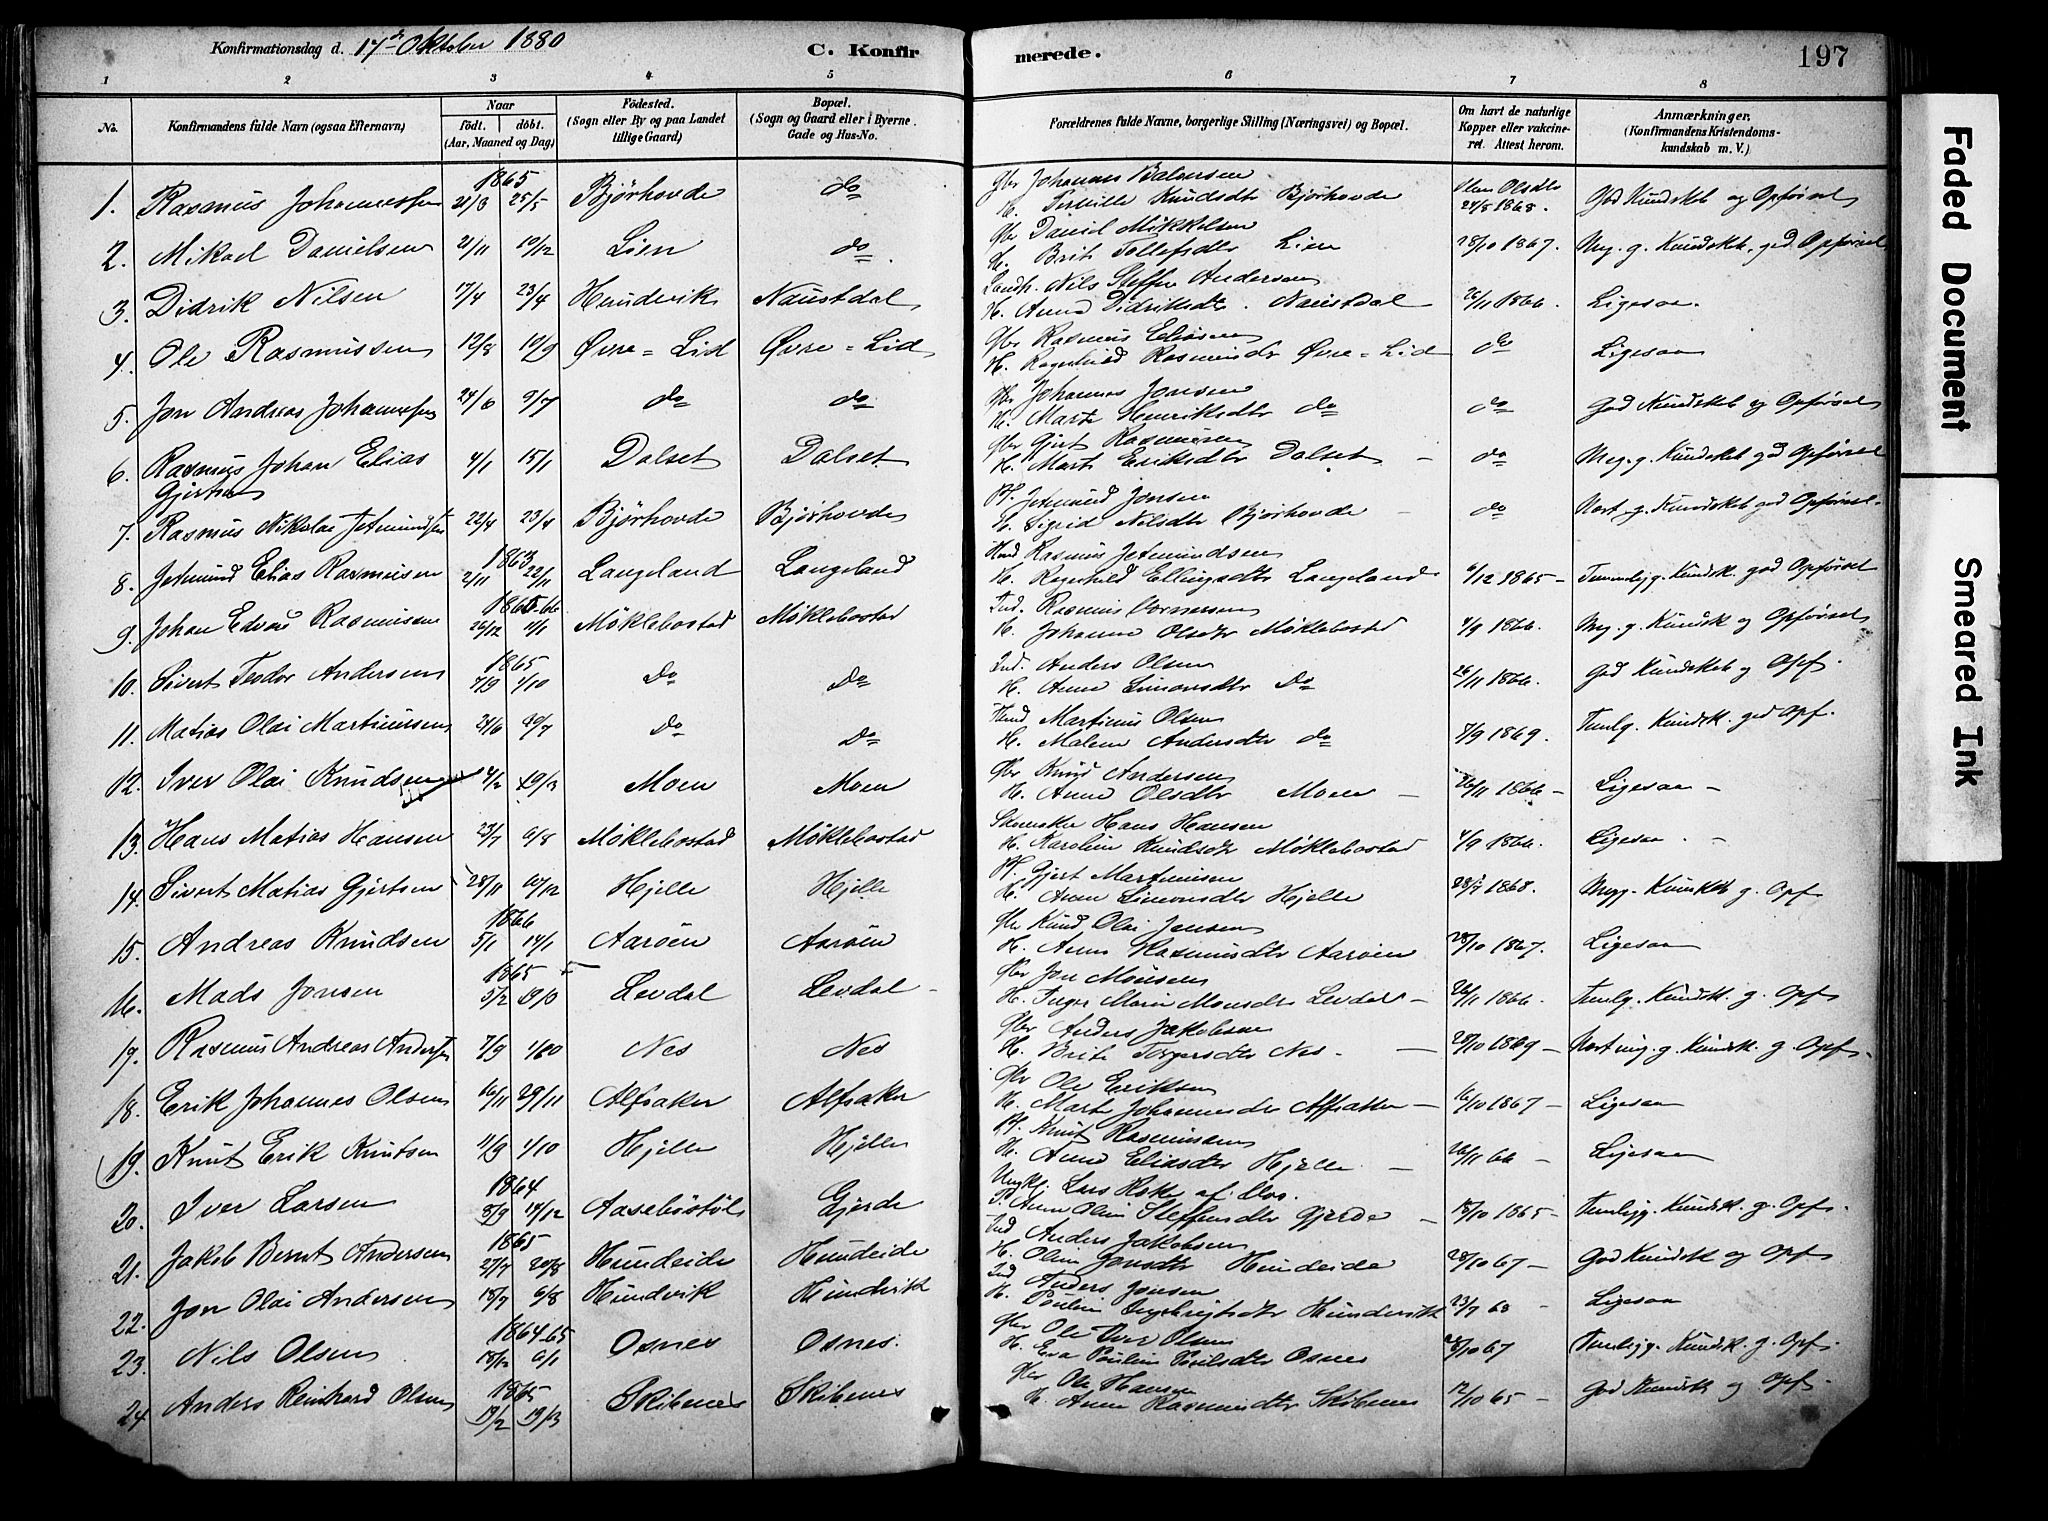 Konfirmationsdag d. 17de Oktober 1880
C. Konfir
merede.
197
1 2 3 4 5 6 7 8
No.
Konfirmandens fulde Navn (ogsaa Efternavn)
Naar
födt. döbt.
(Aar, Maaned og Dag)
Födested.
(Sogn eller By og paa Landet
tillige Gaard)
Bopæl.
(Sogn og Gaard eller i Byerne
Gade og Hus-No.
Forældrenes fulde Navne, borgerlige Stilling (Næringsvei) og Bopæl.
Om havt de naturlige
Kopper eller vakcine-
ret. Attest herom.
Anmærkninger.
(Konfirmandens Kristendoms-
kundskab m. V.)
1865
1. Rasmus Johannessen 21/3 25/5 Bjørhovde do
Gbr Johannes
H. Knudsdtr Bjørhovde 24/8 1868. God Kundskab og Opførsel
2. Mikael Danielsen 21/11 10/12 Lien do
Gbr Daniel Mikkelsen
H. Brit Tollefsdtr Lien 28/10 1867. Meg. g. Kundskab, god Opførsel
3. Didrik Nilsen 17/4 23/4 Hundvik Naustdal
Nils Steffen Andersen
H. Anna Didriksdtr. Naustdal 26/11 1866. Ligesaa.
4. Ole Rasmussen 12/8 10/9 Øvre = Lid Øvre = Lid
Gbr Rasmus Eliasen
H. Ragnhild Rasmusdtr Øvre = Lid do Ligesaa
5. Jon Andreas Johannessen 24/6 9/7 do do
Gbr Johannes Jonsen
H. Marte Henriksdtr do do God Kundskab og Opførsel
6. Rasmus Johan Elias 4/1 15/1 Dalset Dalset
Gjertsen
Gbr Gjert Rasmusen
H. Marte Eriksdtr Dalset - do Meg. g. Kundskab god Opførsel
7. Rasmus Nikolai Jetmundsen 22/4 23/4 Bjørhovde Bjørhovde
Pl. Jetmund Jonsen
H. Sigrid Nilsdtr Bjørhovde - do g. Kundskab god Opførsel.
1863
8. Jetmund Elias Rasmusen 2/11 22/11 Langeland Langeland
Rasmus Jetmundsen
H. Ragnhild Ellingsdtr Langeland 4/12 1865 - Temmelig g. Kundsk. god Opførsel
1865-66
9. Johan Edvard Rasmusen 26/12 1/1 Møklebostad Møklebostad
Ind. Rasmus
H. Johanne Olsdtr Møklebostad 4/9 1866. Meg. g. Kundsk og Opførsel
1865
10. Sivert Teodor Andersen 7/9 1/10 Do Do
Ind. Anders Olsen
H. Anne Simonsdtr Do 26/11 1866. God Kundskab og Opf.
11. Matias Olai Martinussen 24/6 30/7 do Do
Martinus Olsen
H. Malene Andersdtr do 7/9 1869. Temlg. Kundsk. god Opf.
12. Iver Olai Knudsen 4/2 19/3 Moen Moen
Gbr Knud Andersen
H. Anne Olsdtr Moen - 26/11 1866 - Ligesaa -
13. Hans Matias Hansen 23/7 6/8 Møklebostad Møklebostad
Hans Hansen
H. Karoline Knudsdtr Møklebostad 4/9 1866. Ligesaa. -
14. Sivert Matias Gjertsen 28/11 10/12 Hjelle Hjelle
Pl. Gjert Martinusen
H. Anne Simonsdtr Hjelle 1868. Kundskb g. Opf
1866
15. Andreas Knudsen 5/1 14/1 Aarøen Aarøen
Gbr Knud Olai Jensen
H. Anne Rasmusdtr Aarøen 28/10 1867. Ligesaa
1865
16. Mads Jonsen 5/2 19/3 Levdal Levdal -
Gbr Jon Monsen
H. Inger Marie Monsdtr Levdal - 26/11 1866. Temlg. Kundsk. g. Opf
17. Rasmus Andreas Andersen 7/9 1/10 Nes Nes
Gbr Anders Jakobsen
H. Brite Torgersdtr Nes - 28/10 1869 - meg. g. Kundsk. g. Opf.
18. Erik Johannes Olsen 16/11 29/11 Alfsaker Alfsaker
Gbr Ole Eriksen
H. Marte Johannesdtr Alfsaker - 16/10 1867 - Ligesaa
19. Knut Erik Knutsen 11/9 1/10 Hjelle Hjelle
Pl. Knut Rasmusen
H. Anne Eliasdtr Hjelle - 26/11 66 - Ligesaa
1864
20. Iver Larsen 8/9 14/12 Aasebøstøl Gjerde
Ungkl. Lars
P. Anne Oline Steffensdtr Gjerde - 18/10 1865 - Temlig. Kundsk. g. Opf.
1865
21. Jakob Bernt Andersen 27/7 20/8 Hundeide Hundeide
Ind Anders Jakobsen
H. Oline Jonsdtr Hundeide 28/10 67 - God Kundsk og Opf
22. Jon Olai Andersen 18/7 6/8 Hundvik Hundvik
Ind Anders Jonsen
H. Pauline Ingebrigtsdtr Hundvik 23/7 68 - Ligesaa
1864-65
23. Nils Olsen 18/12 6/1 Osnes Osnes.
Gbr Ole Iver Olsen
H. Eva Pauline Osnes 28/10 67 Temlig. Kundsk. g. Opf.
1865
24 Anders Reinhard Olsen 19/2 19/3 Skibenes Skibenes
Gbr Ole Hansen
H. Anne Rasmusdtr Skibenes 12/10 65 - God Kundsk og Opf.
Faded Document
Smeared Ink